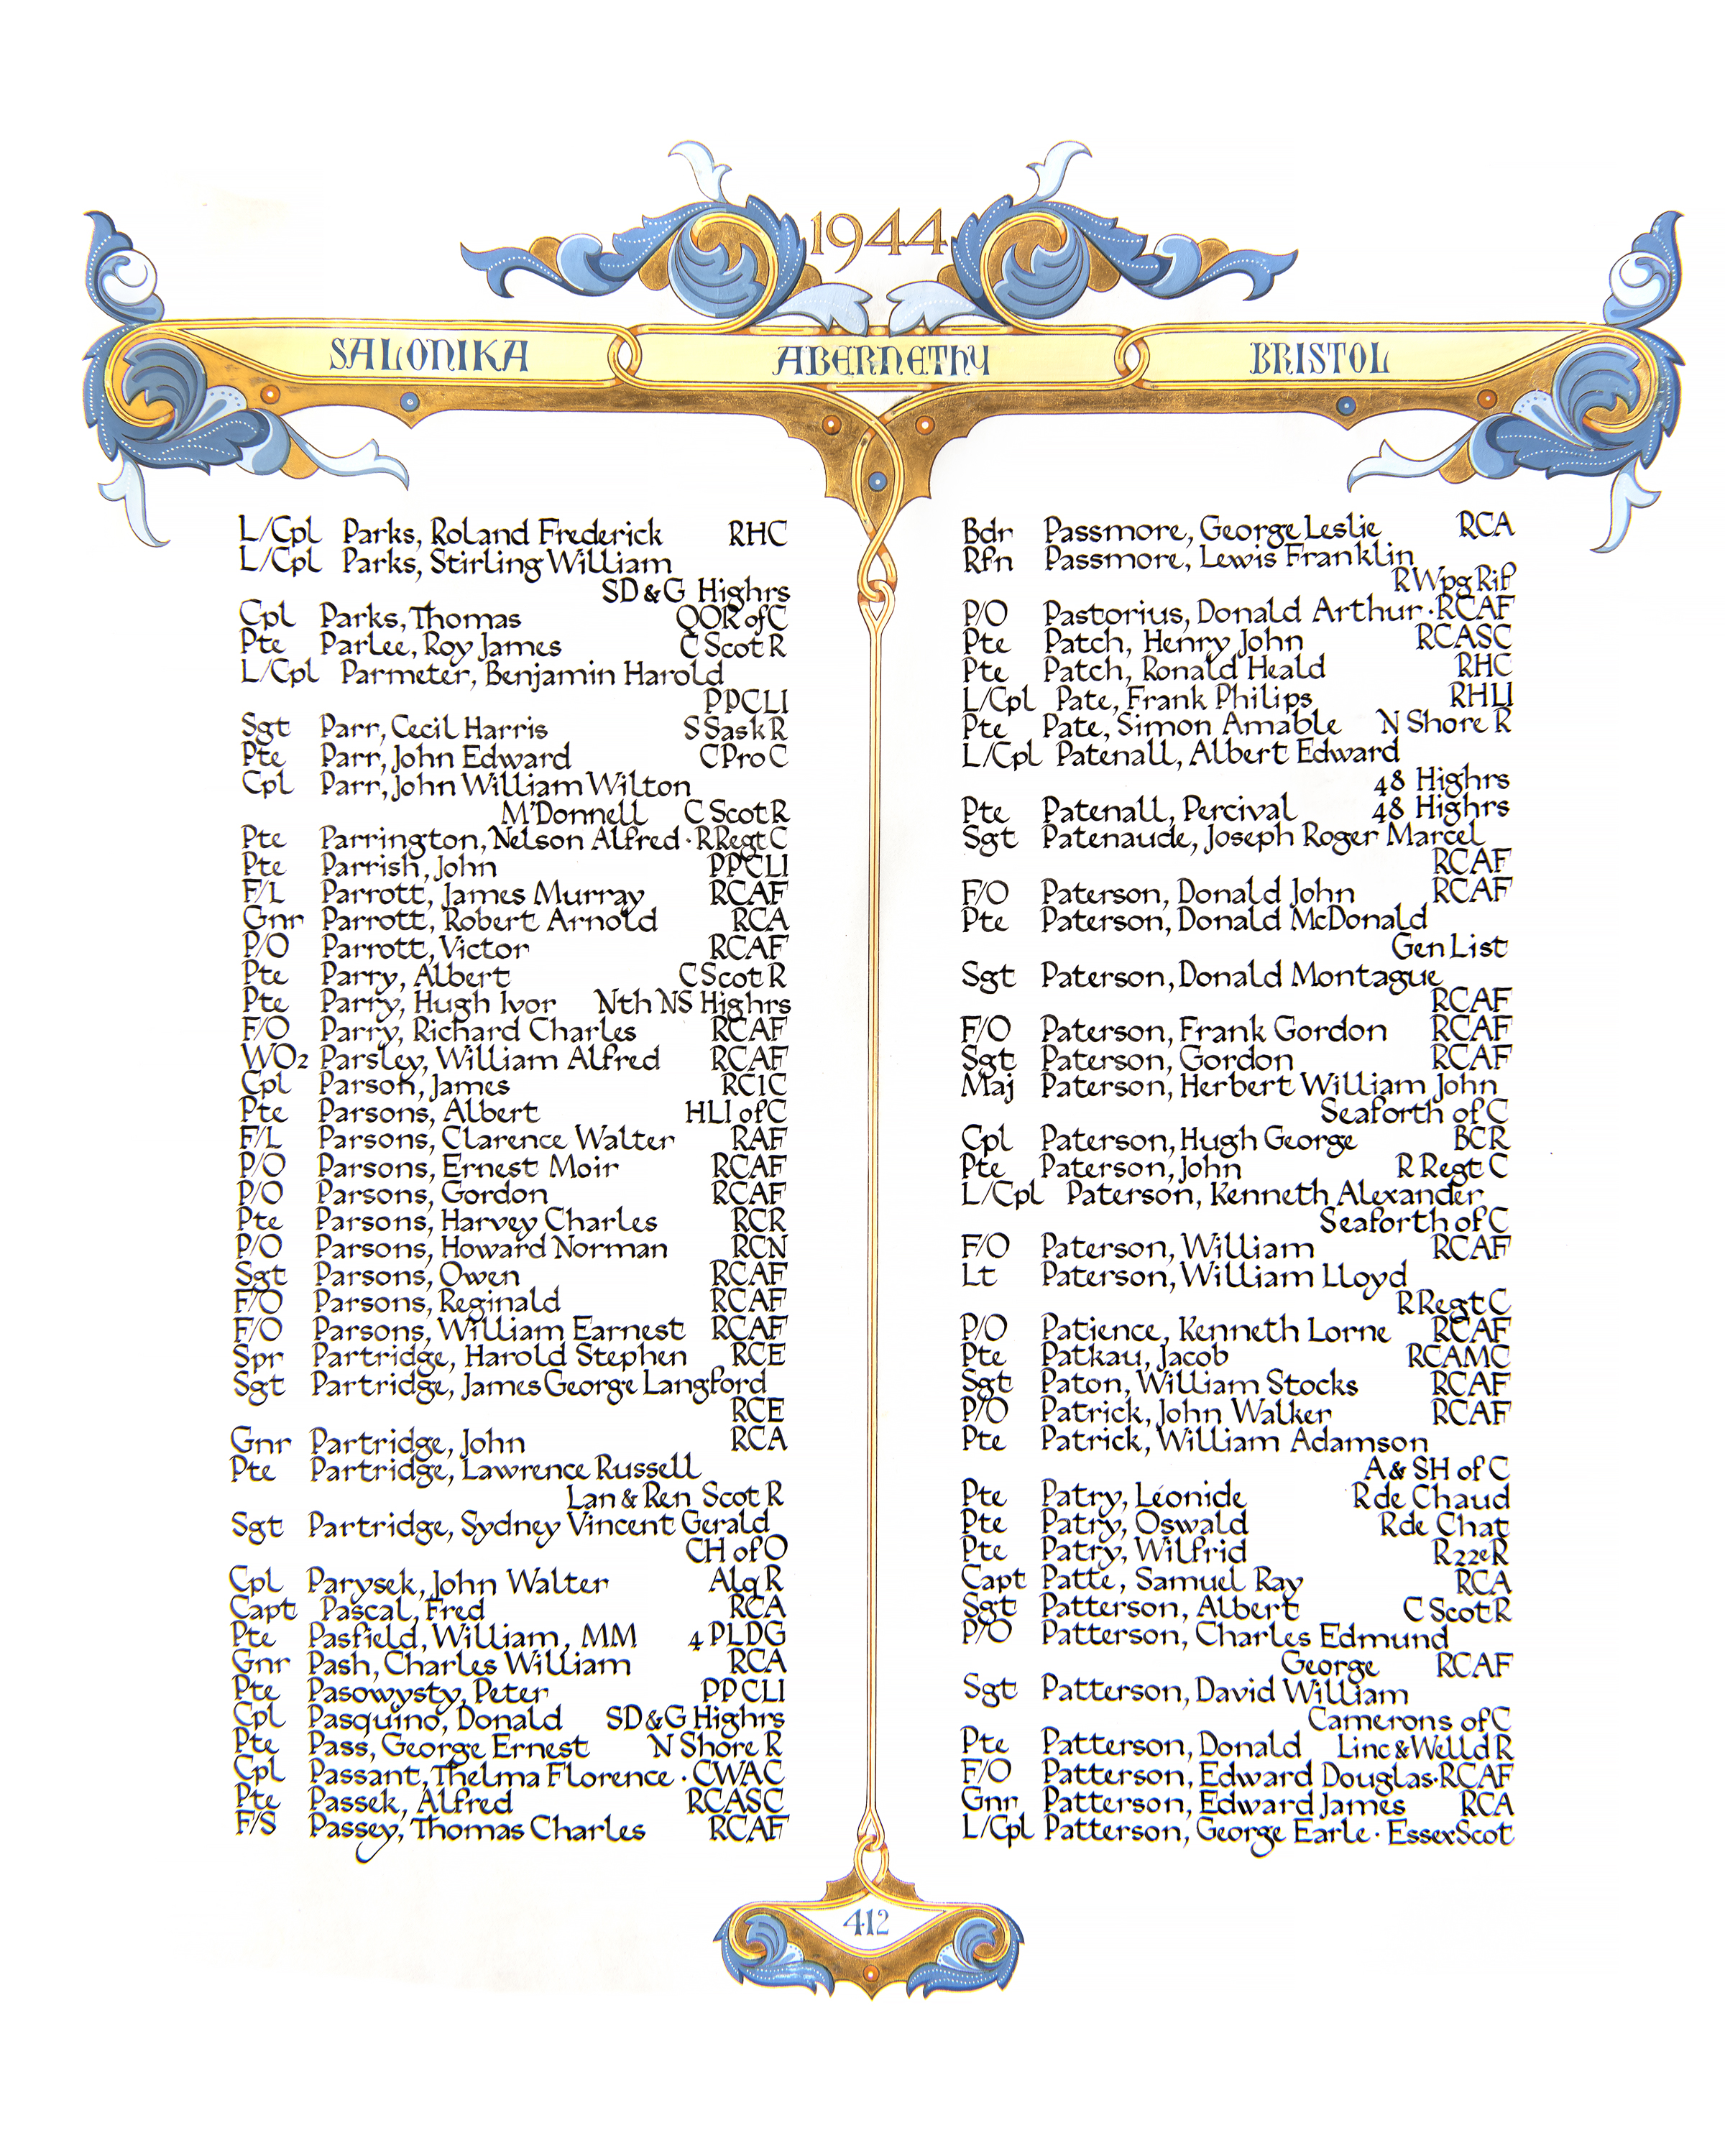 1944
SALONIKA
ABERNETHY
BRISTOL
L/Cpl Parks, Roland Frederick RHC
L/Cpl Parks, Stirling William
SD & G Highrs
Cpl Parks, Thomas QOR of C
Pte Parlee, Roy James C Scot R
L/Cpl Parmeter, Benjamin Harold
PPCLI
Sgt Parr, Cecil Harris S Sask R
Pte Parr, John Edward C Pro C
Cpl Parr, John William Wilton
M'Donnell C Scot R
Pte Parrington, Nelson Alfred · R Regt C
Pte Parrish, John PPCLI
F/L Parrott, James Murray RCAF
Gnr Parrott, Robert Arnold RCA
P/O Parrott, Victor RCAF
Pte Parry, Albert C Scot R
Pte Parry, Hugh Ivor Nth NS Highrs
F/O Parry, Richard Charles RCAF
WO2 Parsley, William Alfred RCAF
Cpl Parson, James RCIC
Pte Parsons, Albert HLI of C
F/L Parsons, Clarence Walter RAF
P/O Parsons, Ernest Moir RCAF
P/O Parsons, Gordon RCAF
Pte Parsons, Harvey Charles RCR
P/O Parsons, Howard Norman RCN
Sgt Parsons, Owen RCAF
F/O Parsons, Reginald RCAF
F/O Parsons, William Earnest RCAF
Spr Partridge, Harold Stephen RCE
Sgt Partridge, James George Langford
RCE
Gnr Partridge, John RCA
Pte Partridge, Lawrence Russell
Lan & Ren Scot R
Sgt Partridge, Sydney Vincent Gerald
CH of O
Cpl Parysek, John Walter Alq R
Capt Pascal, Fred RCA
Pte Pasfield, William, MM 4 PLDG
Gnr Pash, Charles William RCA
Pte Pasowysty, Peter PPCLI
Cpl Pasquino, Donald SD & G Highrs
Pte Pass, George Ernest N Shore R
Cpl Passant, Thelma Florence · CWAC
Pte Passek, Alfred RCASC
F/S Passey, Thomas Charles RCAF
Bdr Passmore, George Leslie RCA
Rfn Passmore, Lewis Franklin
R Wpg Rif
P/O Pastorius, Donald Arthur · RCAF
Pte Patch, Henry John RCASC
Pte Patch, Ronald Heald RHC
L/Cpl Pate, Frank Philips RHLI
Pte Pate, Simon Amable N Shore R
L/Cpl Patenall, Albert Edward
48 Highrs
Pte Patenall, Percival 48 Highrs
Sgt Patenaude, Joseph Roger Marcel
RCAF
F/O Paterson, Donald John RCAF
Pte Paterson, Donald McDonald
Gen List
Sgt Paterson, Donald Montague
RCAF
F/O Paterson, Frank Gordon RCAF
Sgt Paterson, Gordon RCAF
Maj Paterson, Herbert William John
Seaforth of C
Cpl Paterson, Hugh George BCR
Pte Paterson, John R Regt C
L/Cpl Paterson, Kenneth Alexander
Seaforth of C
F/O Paterson, William RCAF
Lt Paterson, William Lloyd
R Regt C
P/O Patience, Kenneth Lorne RCAF
Pte Patkau, Jacob RCAMC
Sgt Paton, William Stocks RCAF
P/O Patrick, John Walker RCAF
Pte Patrick, William Adamson
A & SH of C
Pte Patry, Léonide R de Chaud
Pte Patry, Oswald R de Chat
Pte Patry, Wilfrid R22eR
Capt Patte, Samuel Ray RCA
Sgt Patterson, Albert C Scot R
P/O Patterson, Charles Edmund
George RCAF
Sgt Patterson, David William
Camerons of C
Pte Patterson, Donald Linc & Welld R
F/O Patterson, Edward Douglas · RCAF
Gnr Patterson, Edward James RCA
L/Cpl Patterson, George Earle · Essex Scot
412